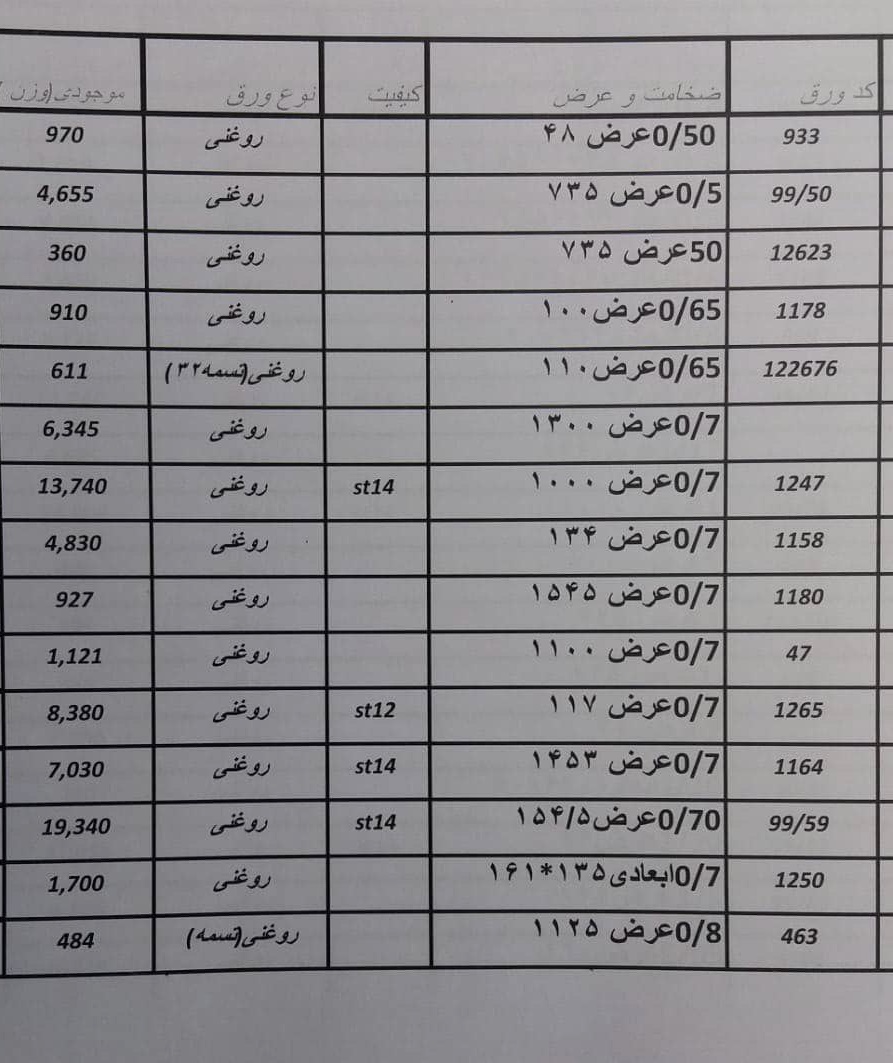 کد ورق ضخامت و عرض کیفیت نوع ورق موجودی(وزن
933 0/50عرض ۴۸ روغنی 970
99/50 0/5عرض ۷۳۵ روغنی 4,655
12623 50عرض ۷۳۵ روغنی 360
1178 0/65عرض۱۰۰ روغنی 910
122676 0/65عرض۱۱۰ روغنی(تسمه۳۲) 611
0/7عرض ۱۳۰۰ روغنی 6,345
1247 0/7عرض ۱۰۰۰ st14 روغنی 13,740
1158 0/7عرض ۱۳۴ روغنی 4,830
1180 0/7عرض ۱۵۴۵ روغنی 927
47 0/7عرض ۱۱۰۰ روغنی 1,121
1265 0/7عرض ۱۱۷ st12 روغنی 8,380
1164 0/7عرض ۱۴۵۳ st14 روغنی 7,030
99/59 0/70عرض۱۵۴/۵ st14 روغنی 19,340
1250 0/7ابعادی۱۳۵*۱۶۱ روغنی 1,700
463 0/8عرض ۱۱۲۵ روغنی(تسمه) 484